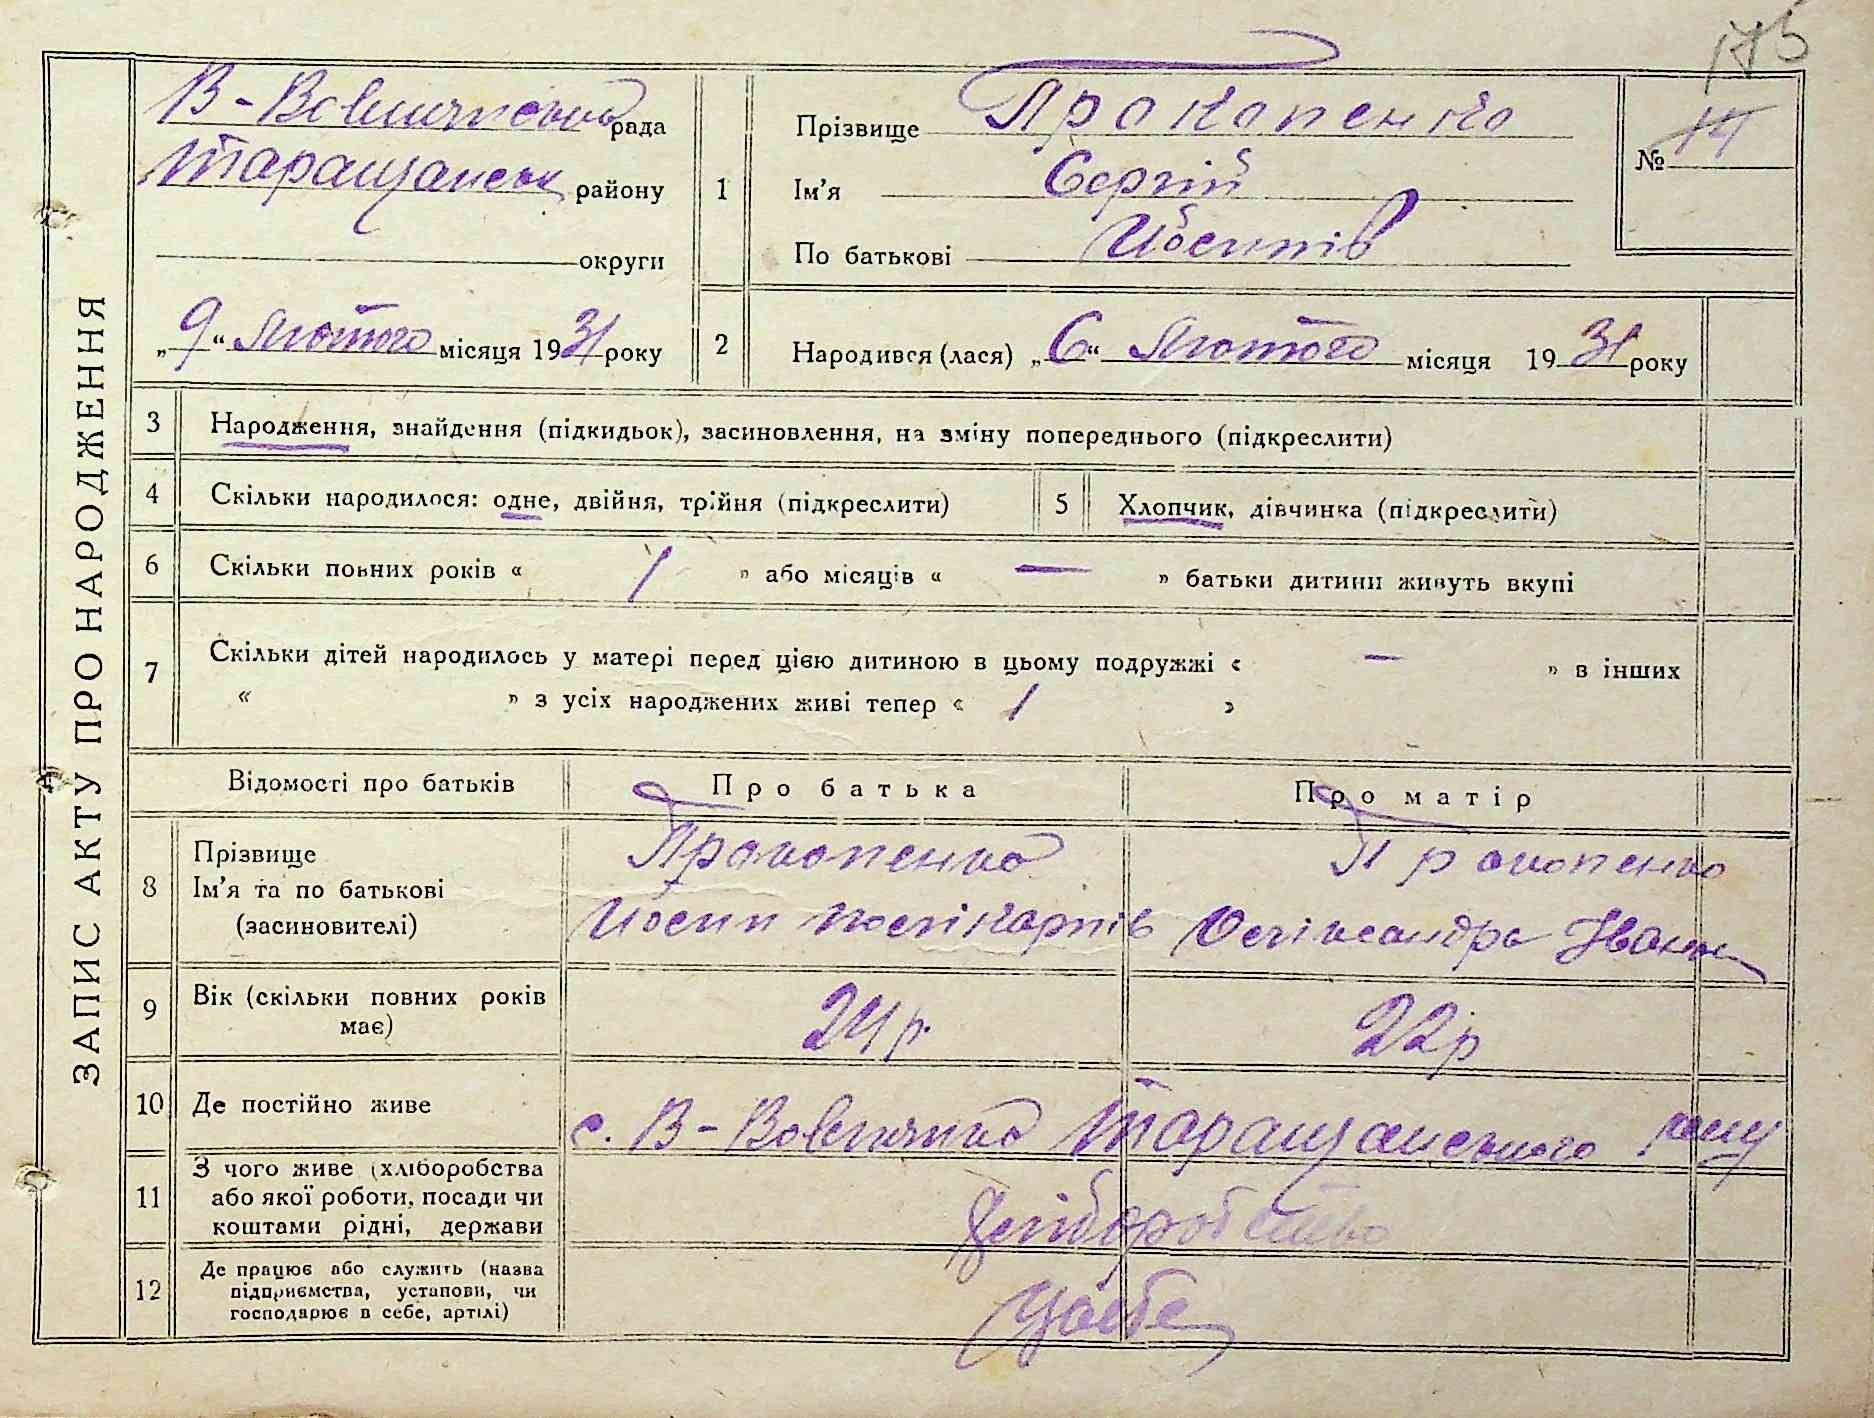 175
ЗАПИС АКТУ ПРО НАРОДЖЕННЯ
В-Вовнянська рада
Таращанськ району
округи
„9“ Лютого місяця 1931 року
1
Прізвище Прокопенко
Ім'я Сергій
По батькові Йосипів
№ 14
2
Народився (лася) „6“ Лютого місяця 1931 року
3 Народження, знайдення (підкидьок), засиновлення, на зміну попереднього (підкреслити)
4 Скільки народилося: одне, двійня, трійня (підкреслити)
5 Хлопчик, дівчинка (підкреслити)
6 Скільки повних років « 1 » або місяців « — » батьки дитини живуть вкупі
7 Скільки дітей народилось у матері перед цією дитиною в цьому подружжі « — » в інших
« » з усіх народжених живі тепер « 1 »
Відомості про батьків Про батька Про матір
8 Прізвище
Ім'я та по батькові
(засиновителі)
Прокопенко
Йосип Полікарпів
Прокопенко
Олександра Іван
9 Вік (скільки повних років
має)
24 р.
22 р
10 Де постійно живе с. В-Вовнянка Таращанського рону
11 З чого живе (хліборобства
або якої роботи, посади чи
коштами рідні, держави
Хліборобство
12 Де працює або служить (назва
підприємства, установи, чи
господарює в себе, артілі)
У себе